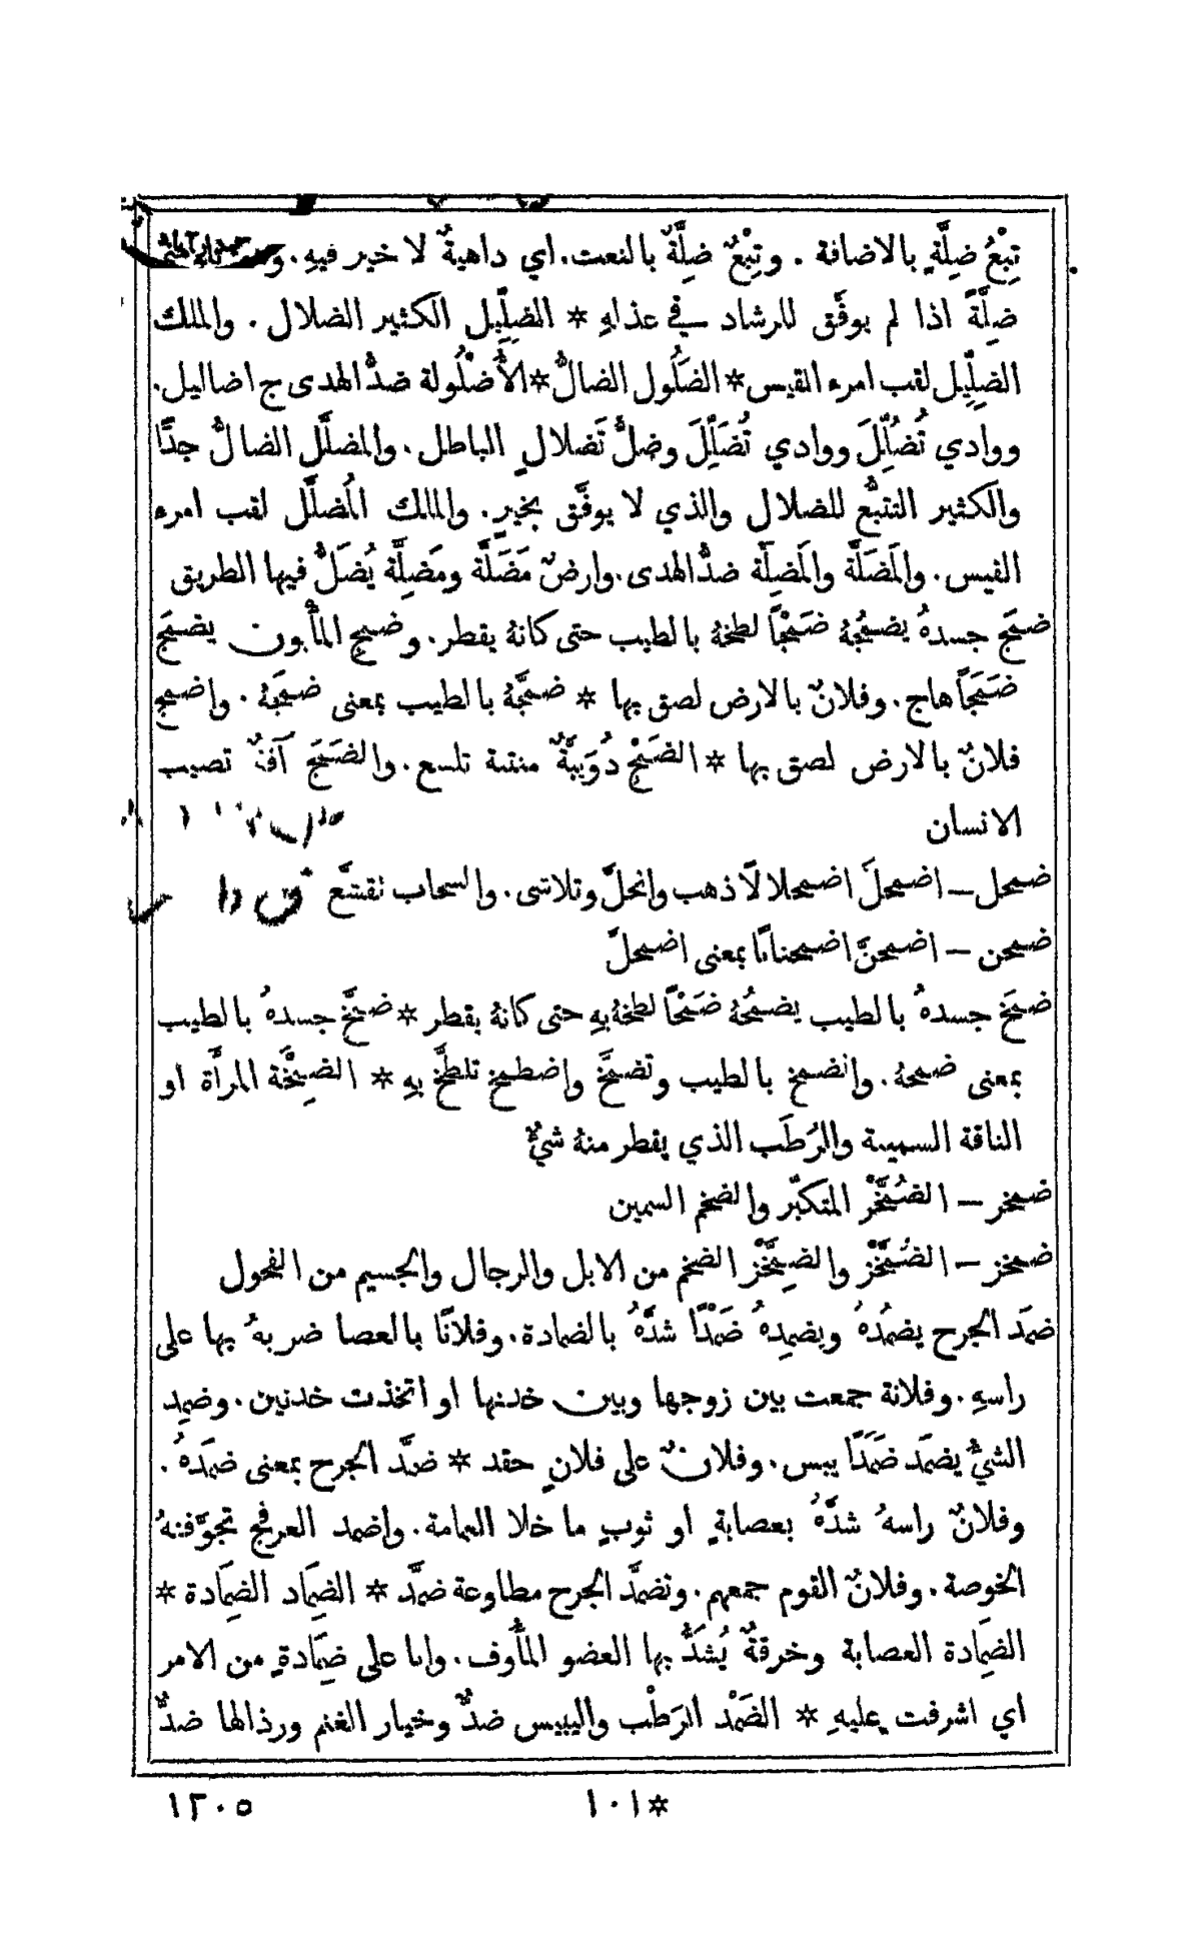 تِبْعُ ضِلَّةٍ بالاضافة . وتِبْعٌ ضِلَّةٌ بالنعت. اي داهيةٌ لا خير فيهِ.
ضِلَّةً اذا لم يوفَّق للرشاد في عذلهِ * الضِلِّيل الكثير الضلال . والملك
الضِلِّيل لقب امرء القيس * الضَلُول الضالُّ * الأُضْلُولة ضدُّ الهدى ج اضاليل.
ووادي تُضُلِّلَ ووادي تُضَلِّلَ وضلُّ تَضلالٍ الباطل. والمضلَّل الضالُّ جدًّا
والكثير التتبُّع للضلال والذي لا يوفَّق بخيرٍ. والملك المُضلَّل لقب امرء
القيس. والمَضَلَّة والمَضِلَّة ضدُّ الهدى. وارضٌ مَضَلَّة ومَضِلَّة يُضَلُّ فيها الطريق
ضمَج جسدهُ يضمُجُهُ ضَمْجًا لطخهُ بالطيب حتى كانهُ يقطر. وضمِج المأبون يضمَج
ضَمَجًا هاج. وفلانٌ بالارض لصق بها * ضمَّجهُ بالطيب بمعنى ضمَجهُ. واضمج
فلانٌ بالارض لصق بها * الضَمْج دُوَيبَّةٌ منتنة تلسع. والضَمَج آفةٌ تصيب
الانسان
ضمحل — اضمحلَّ اضمحلالًا ذهب وانحلَّ وتلاشى. والسحاب تقشَّع
ضمحن — اضمحنَّ اضمحنانًا بمعنى اضمحلَّ
ضمَخ جسدهُ بالطيب يضمُخهُ ضَمْخًا لطخهُ بهِ حتى كانهُ يقطر * ضمَّخ جسدهُ بالطيب
بمعنى ضمخهُ. وانضمخ بالطيب وتضمَّخ واضطمخ تلطَّخ بهِ * الضِمْخَة المرأَة او
الناقة السمينة والرُطَب الذي يقطر منهُ شيءٌ
ضمخر — الضُمَّخْر المتكبّر والضخم السمين
ضمخز — الضُمَّخْز والضِمَّخْز الضخم من الابل والرجال والجسيم من الفحول
ضمَد الجرح يضمُدُهُ ويضمِدهُ ضَمْدًا شدَّهُ بالضمادة. وفلانًا بالعصا ضربهُ بها على
راسهِ. وفلانة جمعت بين زوجها وبين خدنها او اتخذت خدنين. وضمِد
الشيُّ يضمَد ضَمَدًا يبس. وفلانٌ على فلانٍ حقد * ضمَّد الجرح بمعنى ضمَدهُ.
وفلانٌ راسهُ شدَّهُ بعصابةٍ او ثوبٍ ما خلا العمامة. واضمد العرفج تجوَّفتهُ
الخوصة. وفلانٌ القوم جمعهم. وتضمَّد الجرح مطاوعة ضمَّد * الضِمَاد الضِمَادة *
الضِمَادة العصابة وخرقةٌ يُشَدُّ بها العضو المأُوف. وانا على ضِمَادةٍ من الامر
اي اشرفت عليهِ * الضَمْد الرَطْب واليبيس ضدٌّ وخيار الغنم ورذالها ضدٌّ
*١٠١
١٢٠٥